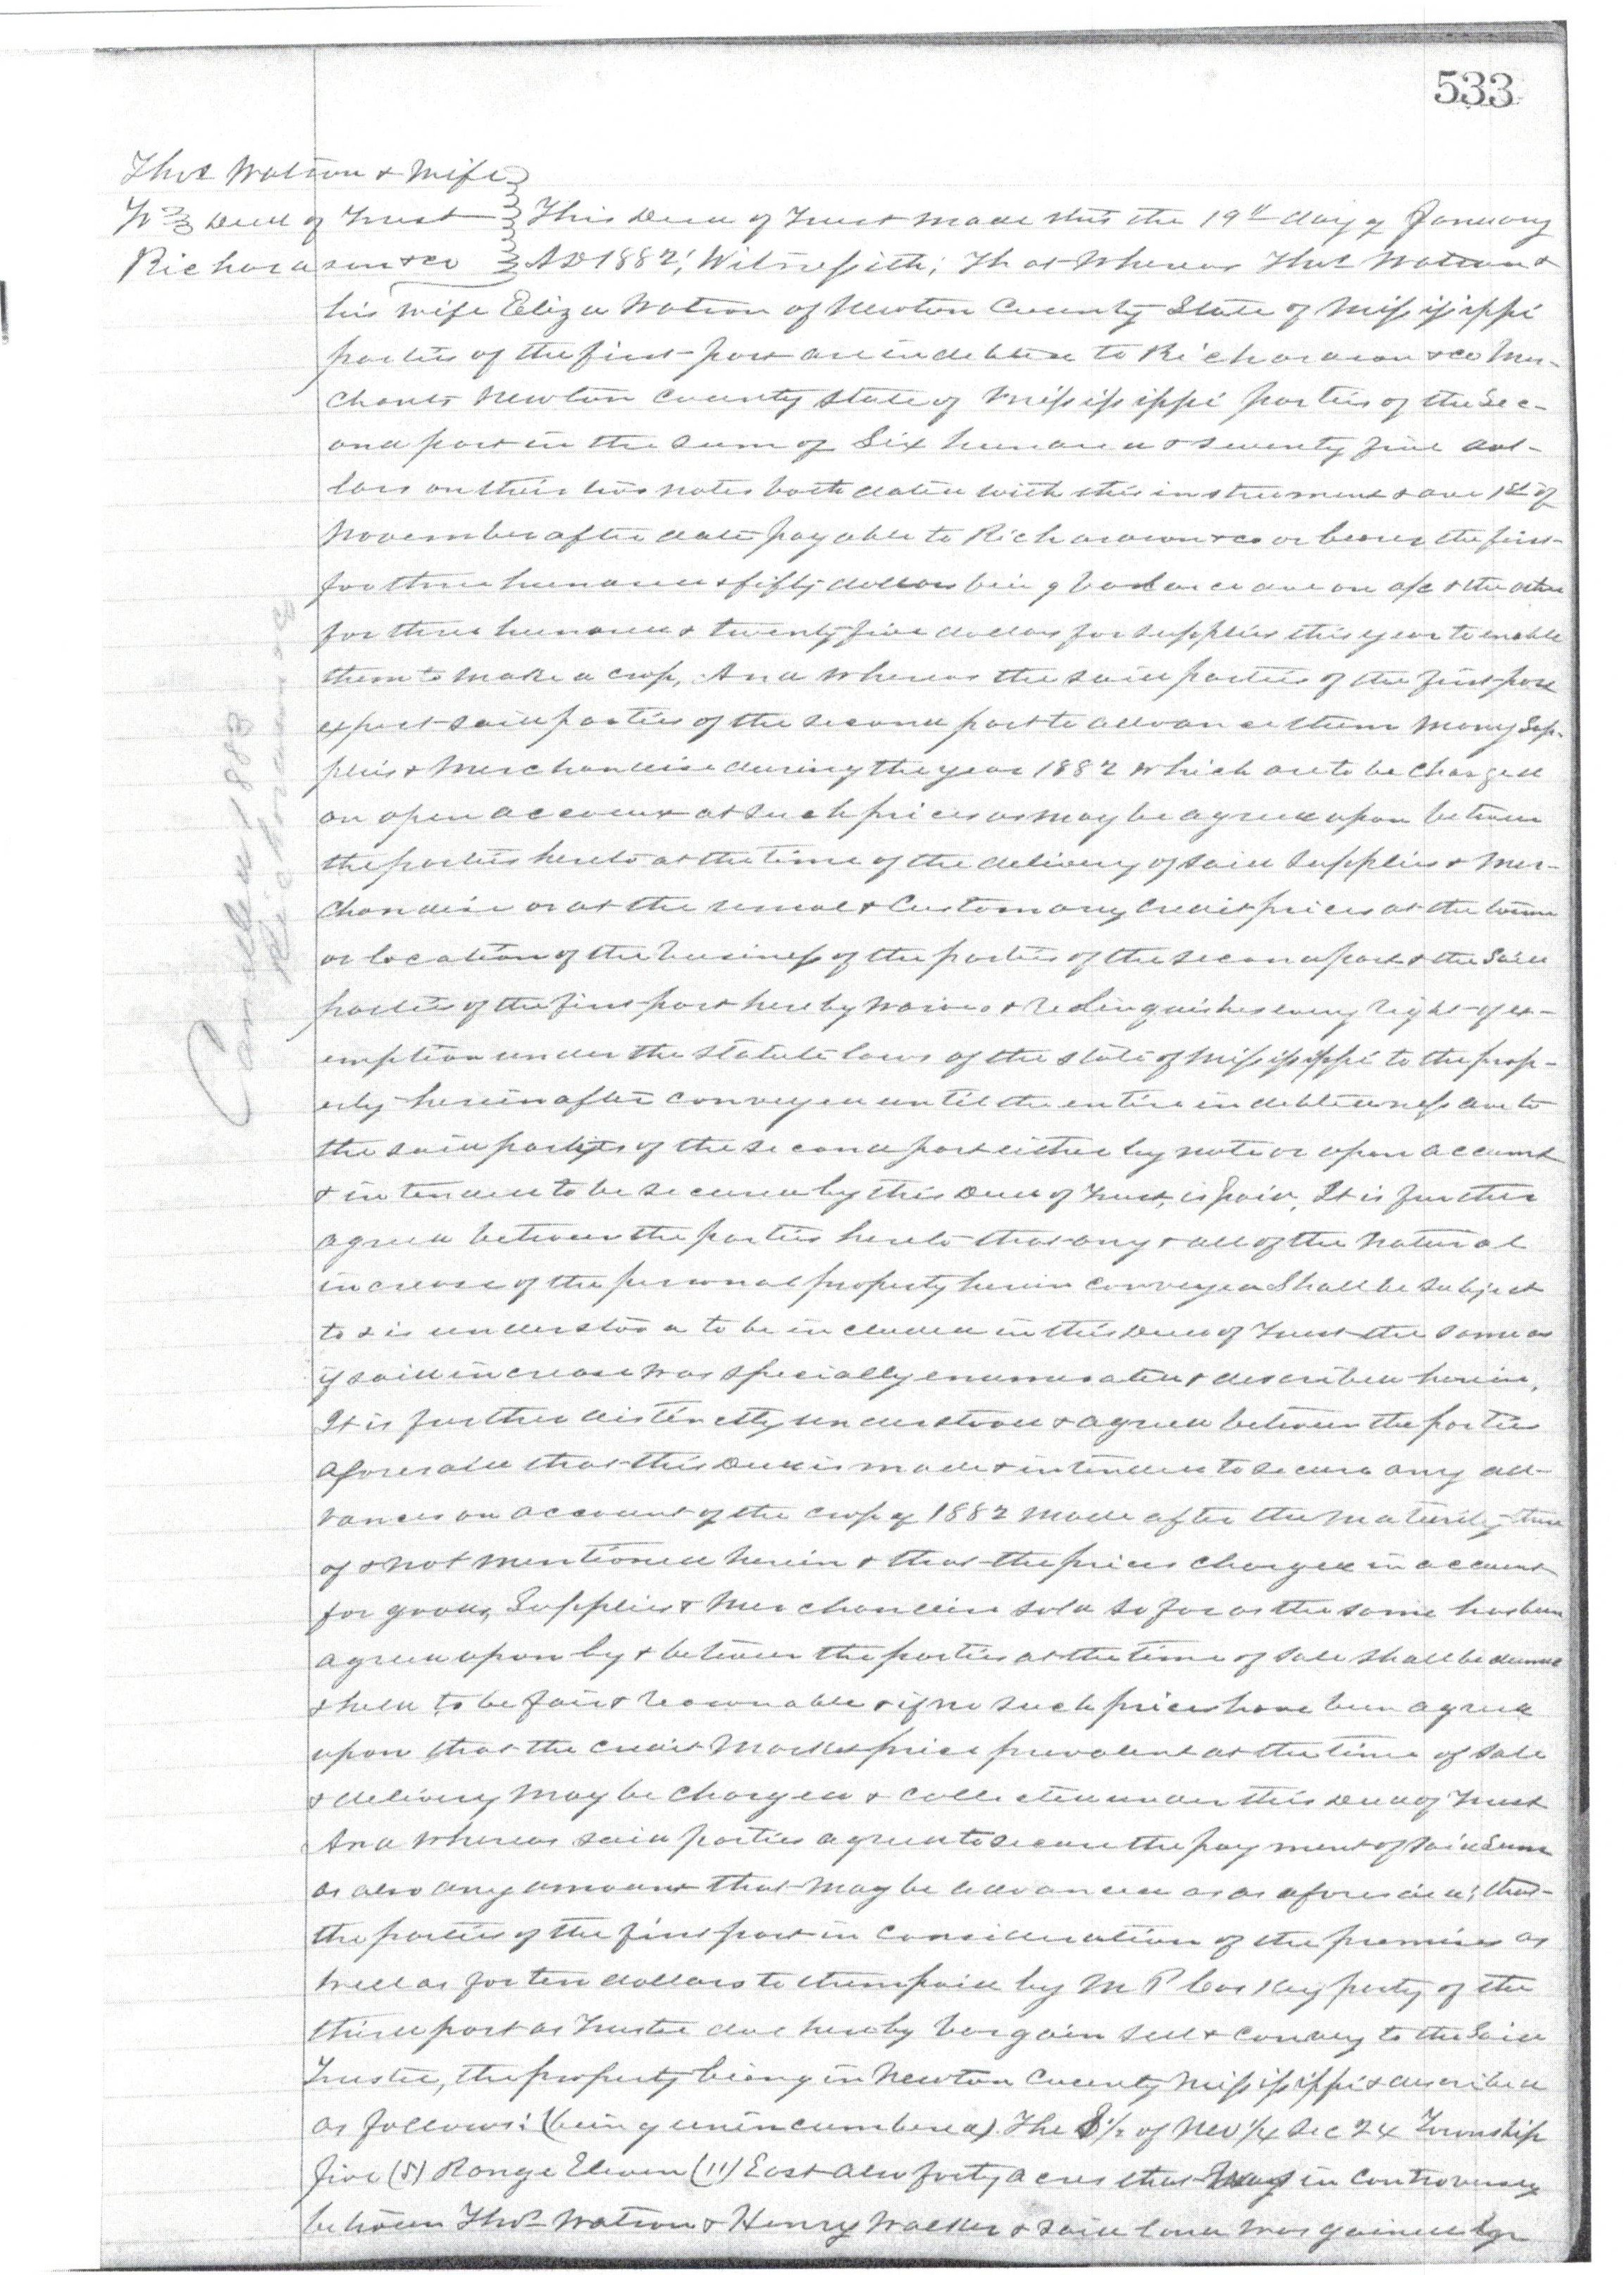 533
Thos Watson & Wife
To Deed of Trust This Deed of Trust made this the 19th day of January
Richardson & co AD 1882; Witnesseth; That Whereas Thos Watson &
his wife Eliza Watson of Newton County State of Mississippi
parties of the first part are indebted to Richardson & co Mer-
chants Newton County State of Mississippi parties of the Sec-
ond part in the sum of Six hundred & seventy five dol-
lars on their two notes both dated with this instrument & due 1st of
November after date payable to Richardson & co or bearer the first
for three hundred & fifty dollars being balance due on a/c & the other
for three hundred & twenty five dollars for supplies this year to enable
them to make a crop, And whereas the said parties of the first part
expect said parties of the second part to advance them Mony Sup-
plies & Merchandise during the year 1882 which are to be charged
on open account at such prices as may be agreed upon between
the parties hereto at the time of the delivery of said supplies & Mer-
chandise or at the usual & Customary Credit prices at the
or location of the business of the parties of the second part & the Said
parties of the first part hereby waives & relinquishes every right of ex-
emption under the statute laws of the state of Mississippi to the prop-
erty herein after conveyed until the entire indebtedness due to
the said parties of the second part either by note or open account
& intended to be secured by this Deed of Trust, is paid, It is further
agreed between the parties hereto that any & all of the natural
increase of the personal property herein conveyed Shall be subject
to & is understood to be included in this Deed of Trust the same as
if said increase was specially enumerated & described herein,
It is further distinctly understood & agreed between the parties
aforesaid that this Deed is made & intended to secure any ad-
vances on account of the crop of 1882 made after the maturity there
of & not mentioned herein & that the prices charged in account
for goods, Supplies & Merchandise sold so far as the same has been
agreed upon by & between the parties at the time of sale shall be deemed
& held to be fair & reasonable & if no such prices have been agreed
upon that the credit Market price prevalent at the time of sale
& delivery may be charged & collected under this Deed of Trust
And whereas said parties agreed to secure the payment of said Sum
as also any amount that may be advanced as as aforesaid; that
the parties of the first part in consideration of the premises as
well as for ten dollars to them paid by M P party of the
third part as Trustee due hereby bargain sell & convey to the Said
Trustee, the property being in Newton County Mississippi & described
as follows: (being unincumbered) The S 1/2 of NW 1/4 Sec 24 Township
five (5) Range Eleven (11) East also forty acres that was in controversy
between Thos Watson & Henry Walker & said land was gained by
Cancelled 1883
Richardson & co